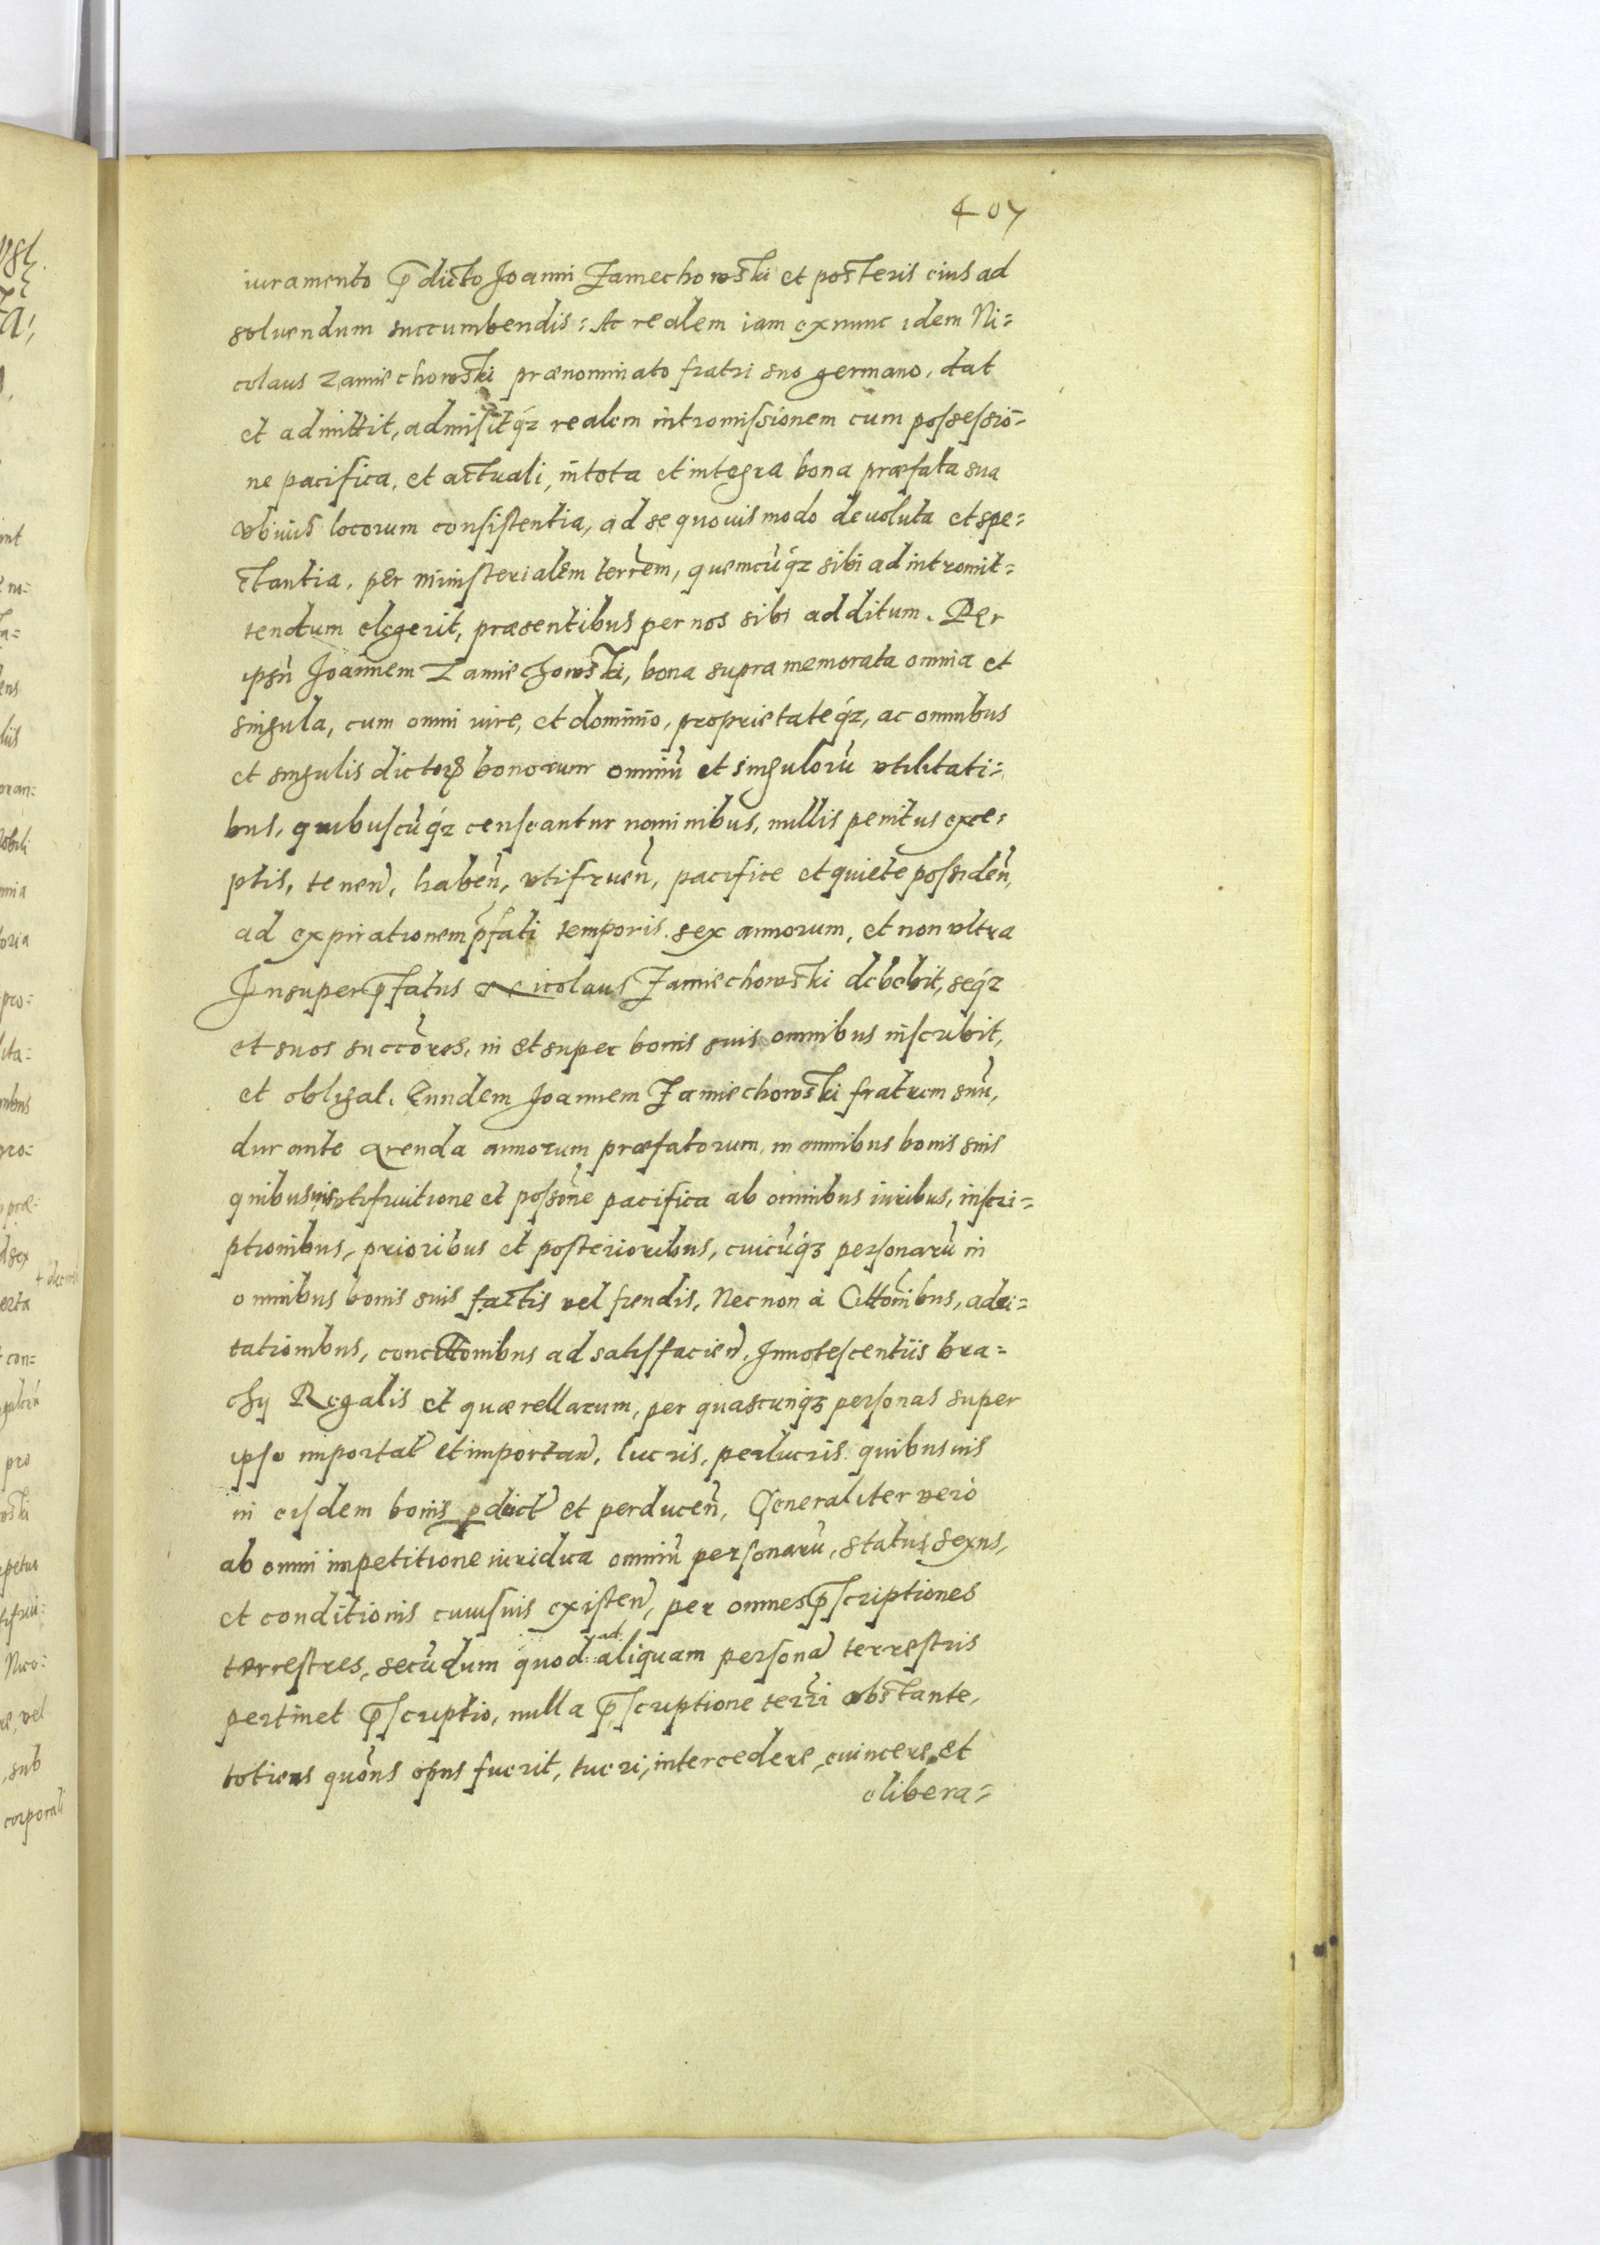 407
iuramento p̄dicto Joanni Zamechowski et posteris eius ad
soluendum succumbendis: Ac realem iam exnunc idem Ni=
colaus Zamiechowski prænominato fratri suo germano, dat
et admittit, admisitq́z realem intromissionem cum possessio=
ne pacifica, et actuali, in tota et integra bona præfata sua
vbiuis locorum consistentia, ad se quouis modo deuoluta et spe=
ctantia, per ministerialem terrēm, quemcūq́z sibi ad intromit=
tendum elegerit, præsentibus per nos sibi additum. Per
ipsū Joannem Zamiechowski, bona supra memorata omnia et
singula, cum omni iure, et dominio, proprietateq́z, ac omnibus
et singulis dictorꝝ bonorum omniū et singulorū vtilitati=
bus, quibuscūq́z censeantur nominibus, nullis penitus exce=
ptis, tenen̄, haben̄, vtifruen̄, pacifice et quiete possiden̄,
ad expirationem p̄fati temporis sex annorum, et non vltra
Insuper p̄fatus Nicolaus Zamiechowski debebit, seq́z
et suos succōres, in et super bonis suis omnibus inscribit,
et obligat. Eundem Joannem Zamiechowski fratrem suū,
durante arenda annorum præfatorum, in omnibus bonis suis
quibusuis vtifruitione et possōne pacifica ab omnibus iuribus, inscri=
ptionibus, prioribus et posterioribus, cuicūq́z personarū in
omnibus bonis suis factis vel fiendis, Necnon à Ottonibus, adci=
tationibus, concitationibus ad satisfacien̄, Innotescentiis bra=
chy Regalis et quærellarum, per quascunq́z personas super
ipso importat̄ et importan̄, lucris, perlucris quibusuis
in eisdem bonis p̱duct̄ et perducen̄, Generaliter verò
ab omni impetitione iuridica omniū personarū, status, sexus,
et conditionis cuiusuis existen̄, per omnes p̄scriptiones
terrestres, secūdum quod ad aliquam personā terrestris
pertinet p̄scriptio, nulla p̄scriptione terrī obstante,
totiens quōns opus fuerit, tueri, intercedere, euincere, et
libera=